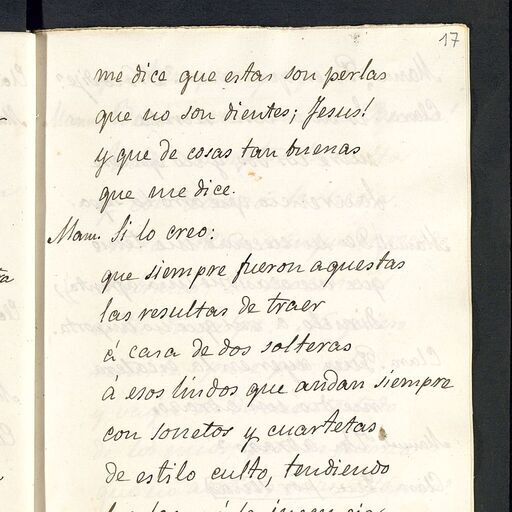 17
me dice que estas son perlas
que no son dientes; Jesus!
y que de cosas tan buenas
que me dice.
Man. Si lo creo:
que siempre fueron aquestas
las resultas de traer
á casa de dos solteras
á esos lindos que andan siempre
con sonetos y cuartetas
de estilo culto, tendiendo